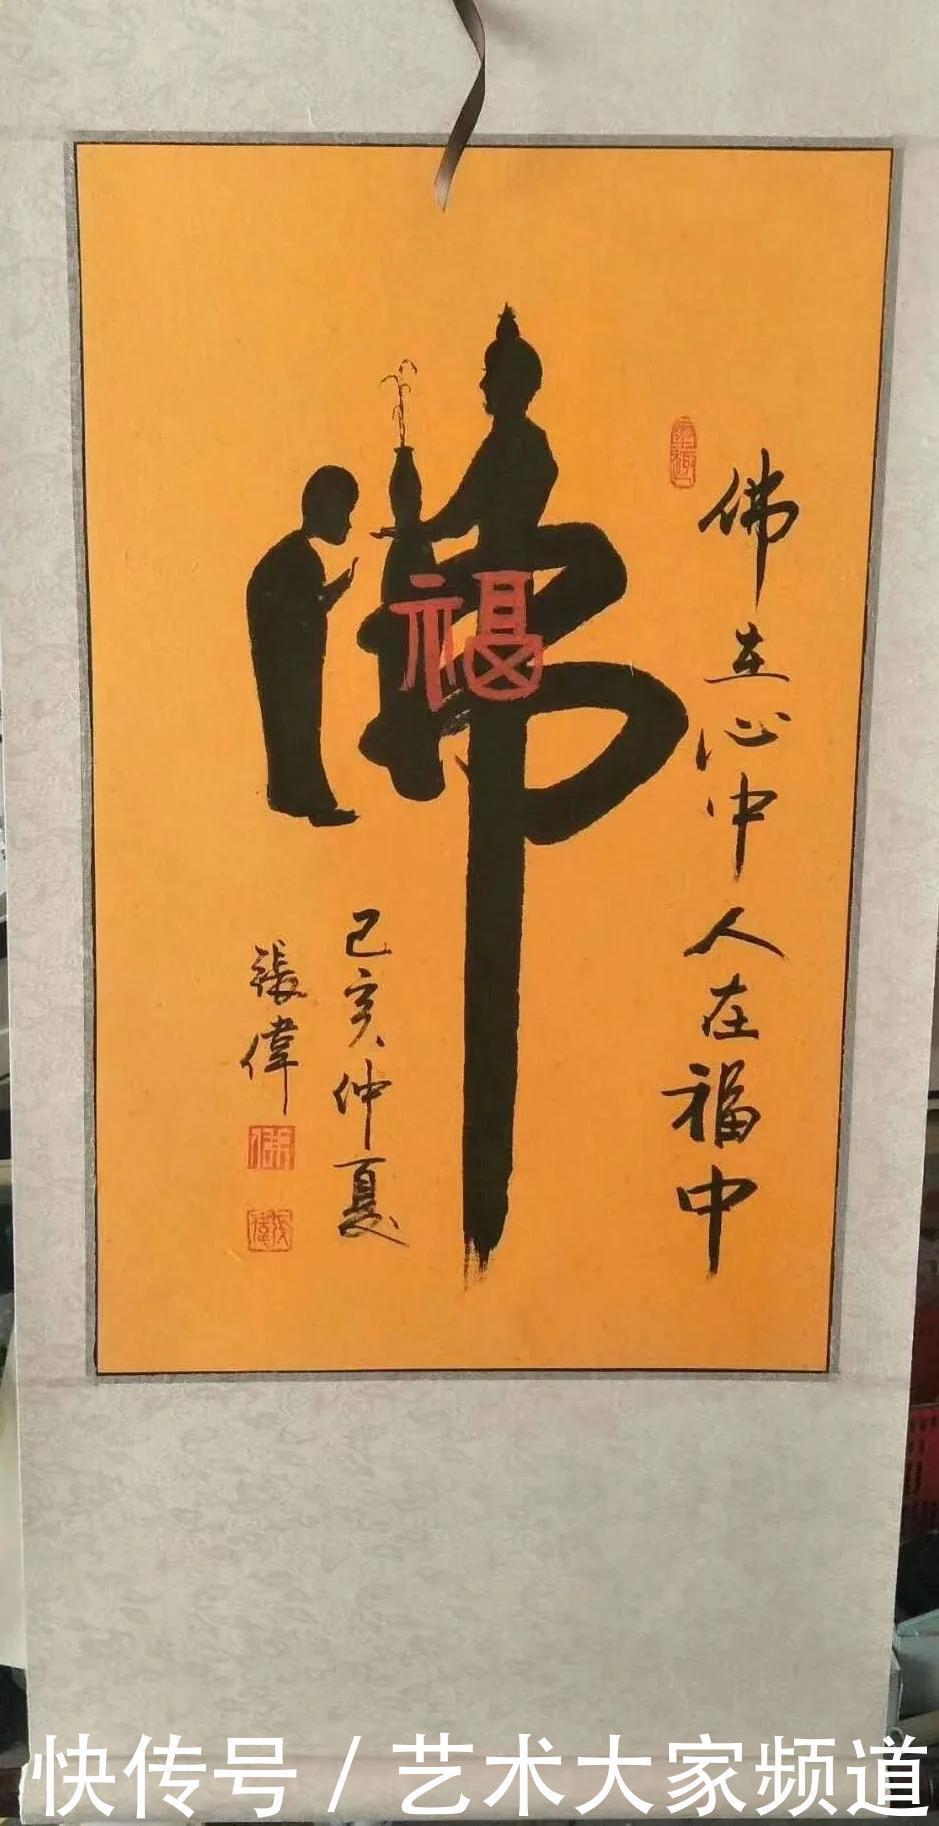 佛在心中人在福中
佛
福
己亥仲夏
張偉
快传号 / 艺术大家频道